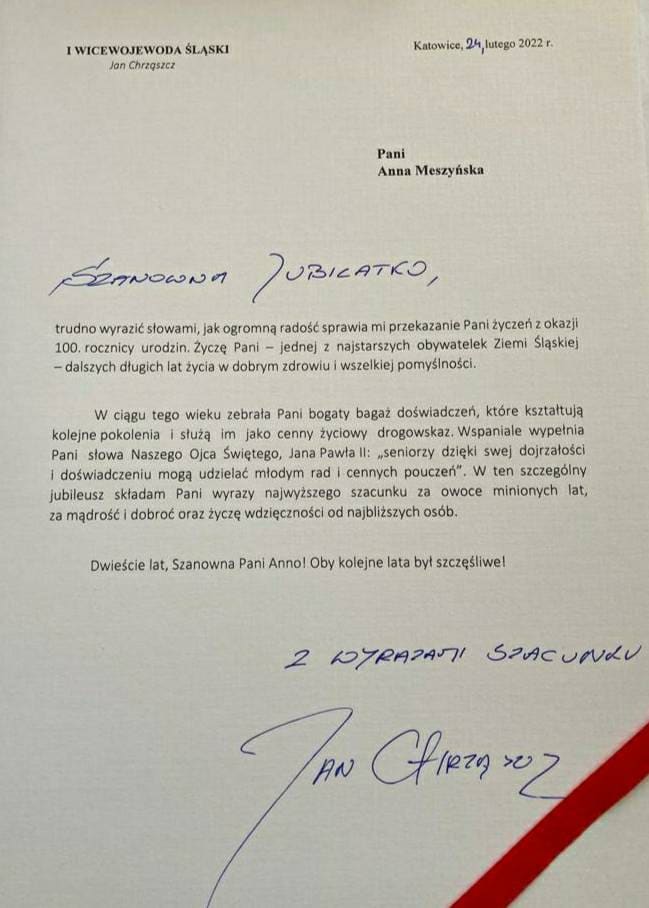 I WICEWOJEWODA ŚLĄSKI
Jan Chrząszcz
Katowice, 24 lutego 2022 r.
Pani
Anna Meszyńska
Szanowna Jubilatko,
trudno wyrazić słowami, jak ogromną radość sprawia mi przekazanie Pani życzeń z okazji
100. rocznicy urodzin. Życzę Pani – jednej z najstarszych obywatelek Ziemi Śląskiej
– dalszych długich lat życia w dobrym zdrowiu i wszelkiej pomyślności.
W ciągu tego wieku zebrała Pani bogaty bagaż doświadczeń, które kształtują
kolejne pokolenia i służą im jako cenny życiowy drogowskaz. Wspaniale wypełnia
Pani słowa Naszego Ojca Świętego, Jana Pawła II: „seniorzy dzięki swej dojrzałości
i doświadczeniu mogą udzielać młodym rad i cennych pouczeń”. W ten szczególny
jubileusz składam Pani wyrazy najwyższego szacunku za owoce minionych lat,
za mądrość i dobroć oraz życzę wdzięczności od najbliższych osób.
Dwieście lat, Szanowna Pani Anno! Oby kolejne lata był szczęśliwe!
Z WYRAZAMI SZACUNKU
JAN CHRZĄSZCZ